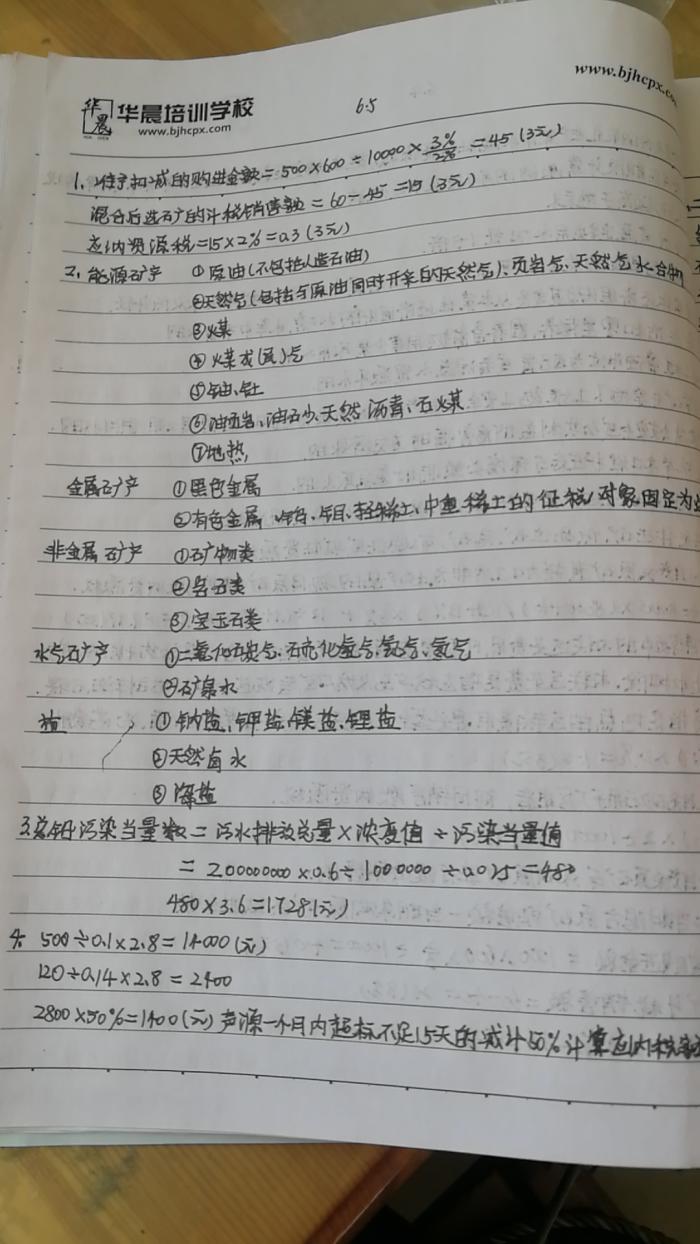 www.bjhcpx.co
华晨
华晨培训学校
www.bjhcpx.com
6.5
1. 准予扣减的购进金额=500×600÷10000×3%/2%=45(万元)
混合后选矿的计税销售额=60-45=15(万元)
应纳资源税=15×2%=0.3(万元)
2. 能源矿产 ①原油(不包括人造石油)
②天然气(包括与原油同时开采的天然气)、页岩气、天然气水合物
③煤
④煤成(层)气
⑤铀、钍
⑥油页岩、油砂、天然沥青、石煤
⑦地热
金属矿产 ①黑色金属
②有色金属 钨、钼、轻稀土、中重稀土的征税对象固定为
非金属矿产 ①矿物类
②岩石类
③宝玉石类
水气矿产 ①二氧化碳气、硫化氢气、氦气、氡气
②矿泉水
盐 ①钠盐、钾盐、镁盐、锂盐
②天然卤水
③海盐
3.总铅污染当量数=污水排放总量×浓度值÷污染当量值
=20000000×0.6÷1000000÷0.025=480
480×3.6=1728(元)
4. 500÷0.1×2.8=14000(元)
120÷0.14×2.8=2400
2800×50%=1400(元)声源一个月内超标不足15天的减计50%计算应纳税